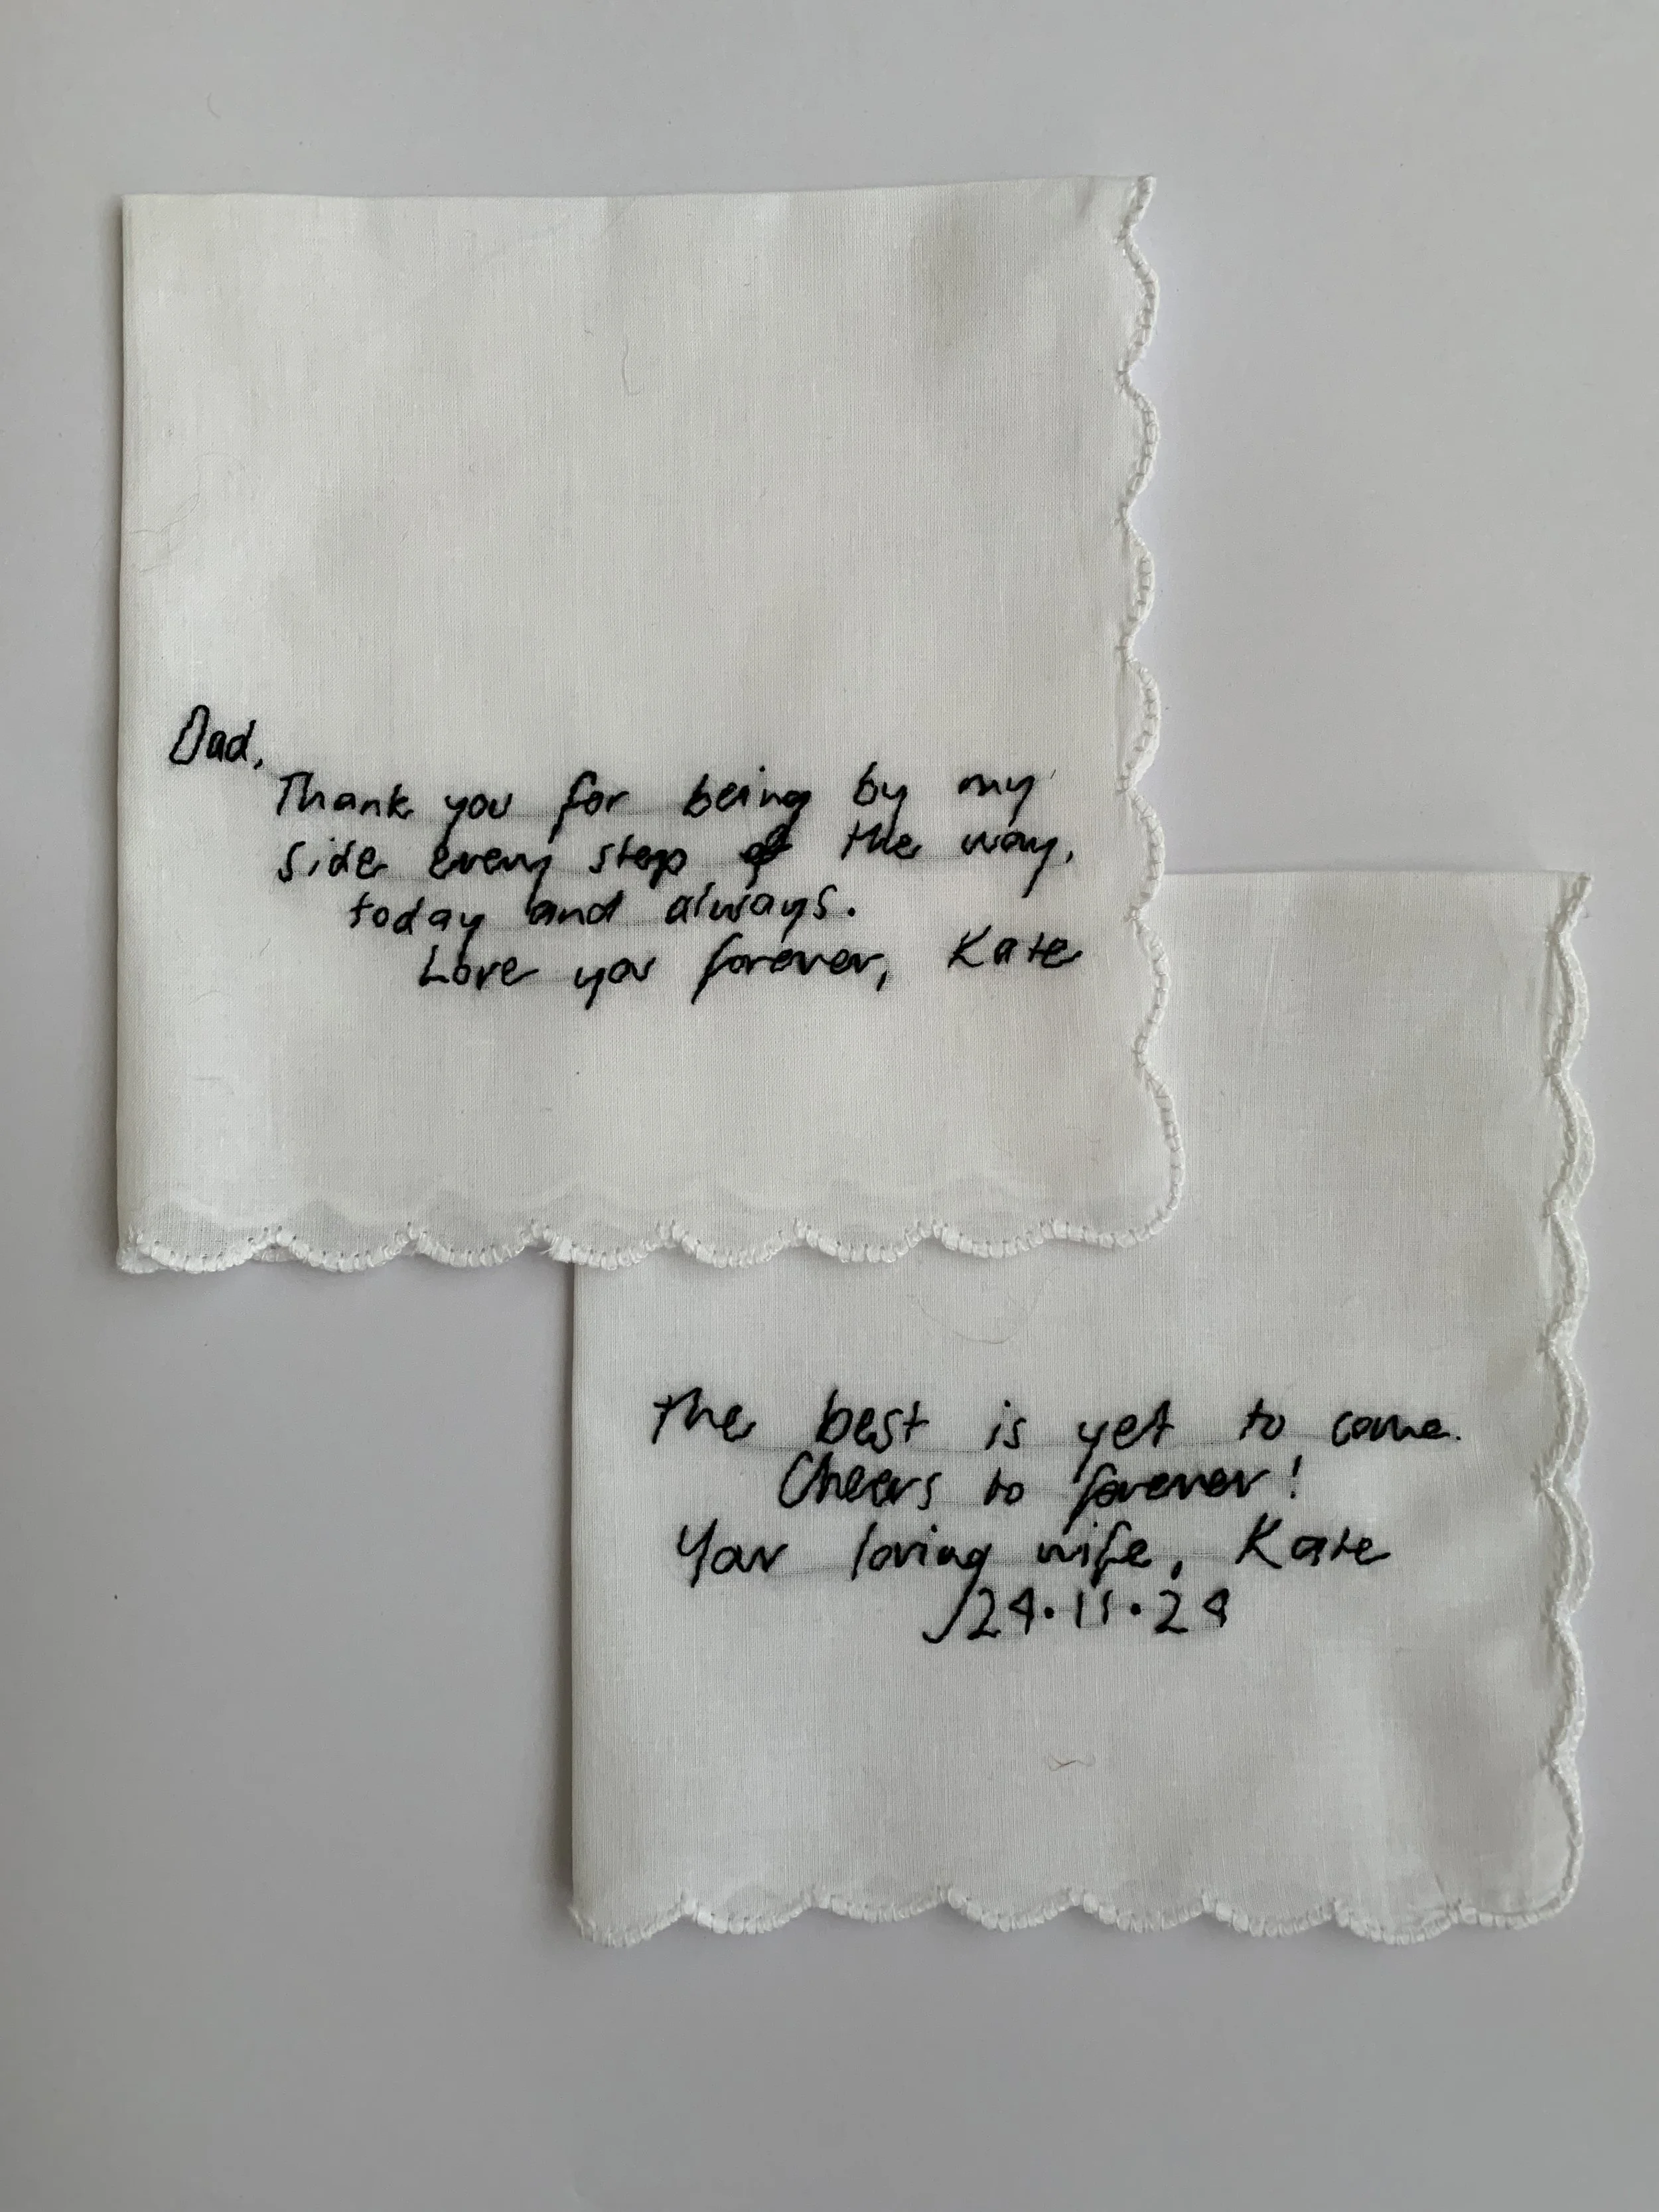 Dad,
Thank you for being by my
side every step of the way,
today and always.
Love you forever, Kate
The best is yet to come.
Cheers to forever!
Your loving wife, Kate
24.11.24